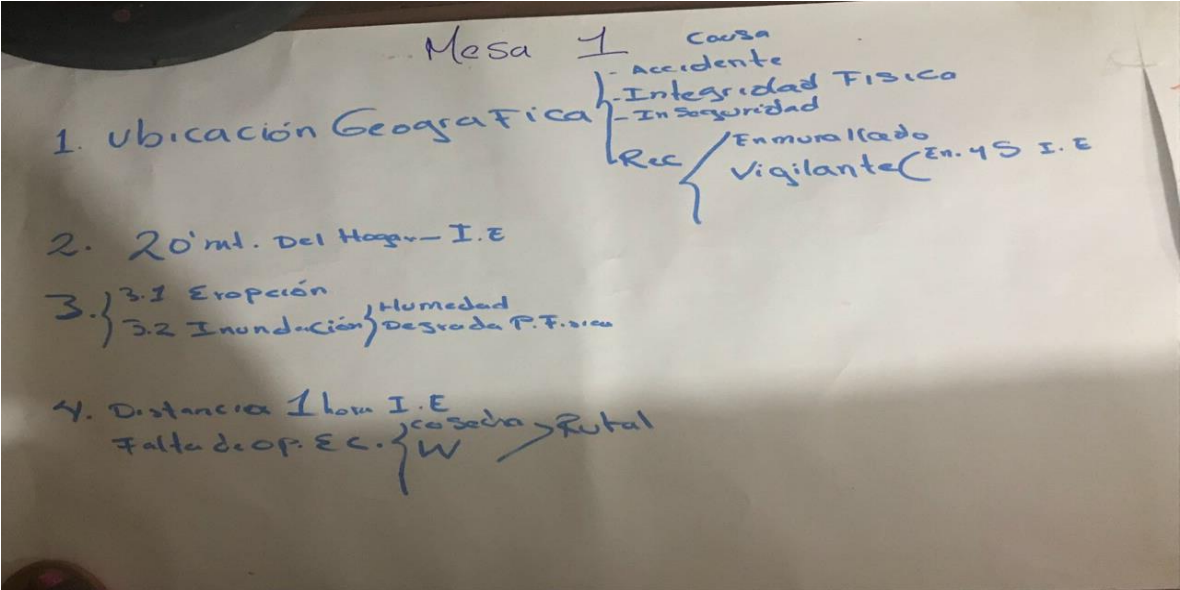 Mesa 1
Causa
- Accidente
1. Ubicación Geografica - Integridad Fisico
- Inseguridad
Rec Enmurallado
Vigilante (En. 45 I.E
2. 20 mt. Del Hogar - I.E
3. 3.1 Eropción
3.2 Inundación Humedad
Degrada P. Fisica
4. Distancia 1 hora I.E
Falta de op. Ec. Cosecha Rural
W